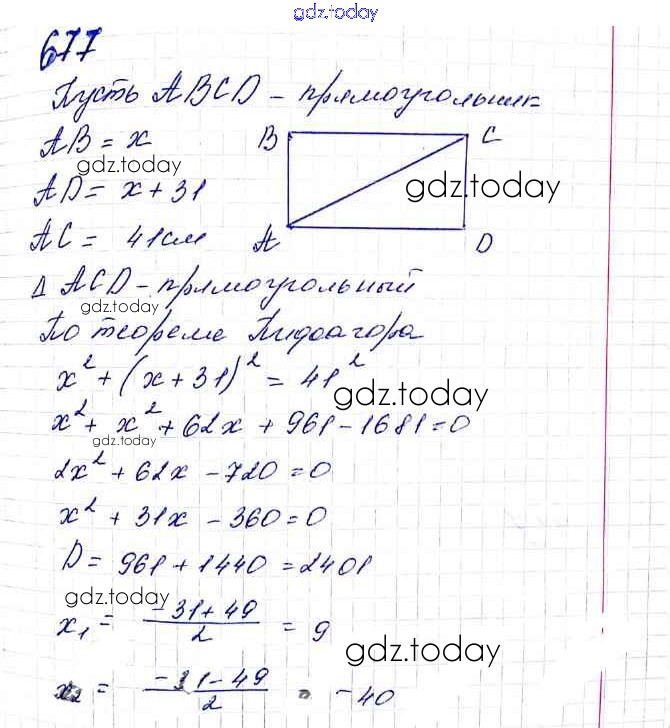 gdz.today
677
Пусть ABCD - прямоугольник
AB = x
gdz.today
AD = x + 31
AC = 41см
B C
gdz.today
A D
Δ ACD - прямоугольный
gdz.today
По теореме Пифагора
x² + (x + 31)² = 41²
gdz.today
x² + x² + 62x + 961 - 1681 = 0
gdz.today
2x² + 62x - 720 = 0
x² + 31x - 360 = 0
D = 961 + 1440 = 2401
gdz.today
x₁ = (-31 + 49)/2 = 9
gdz.today
x₂ = (-31 - 49)/2 = -40